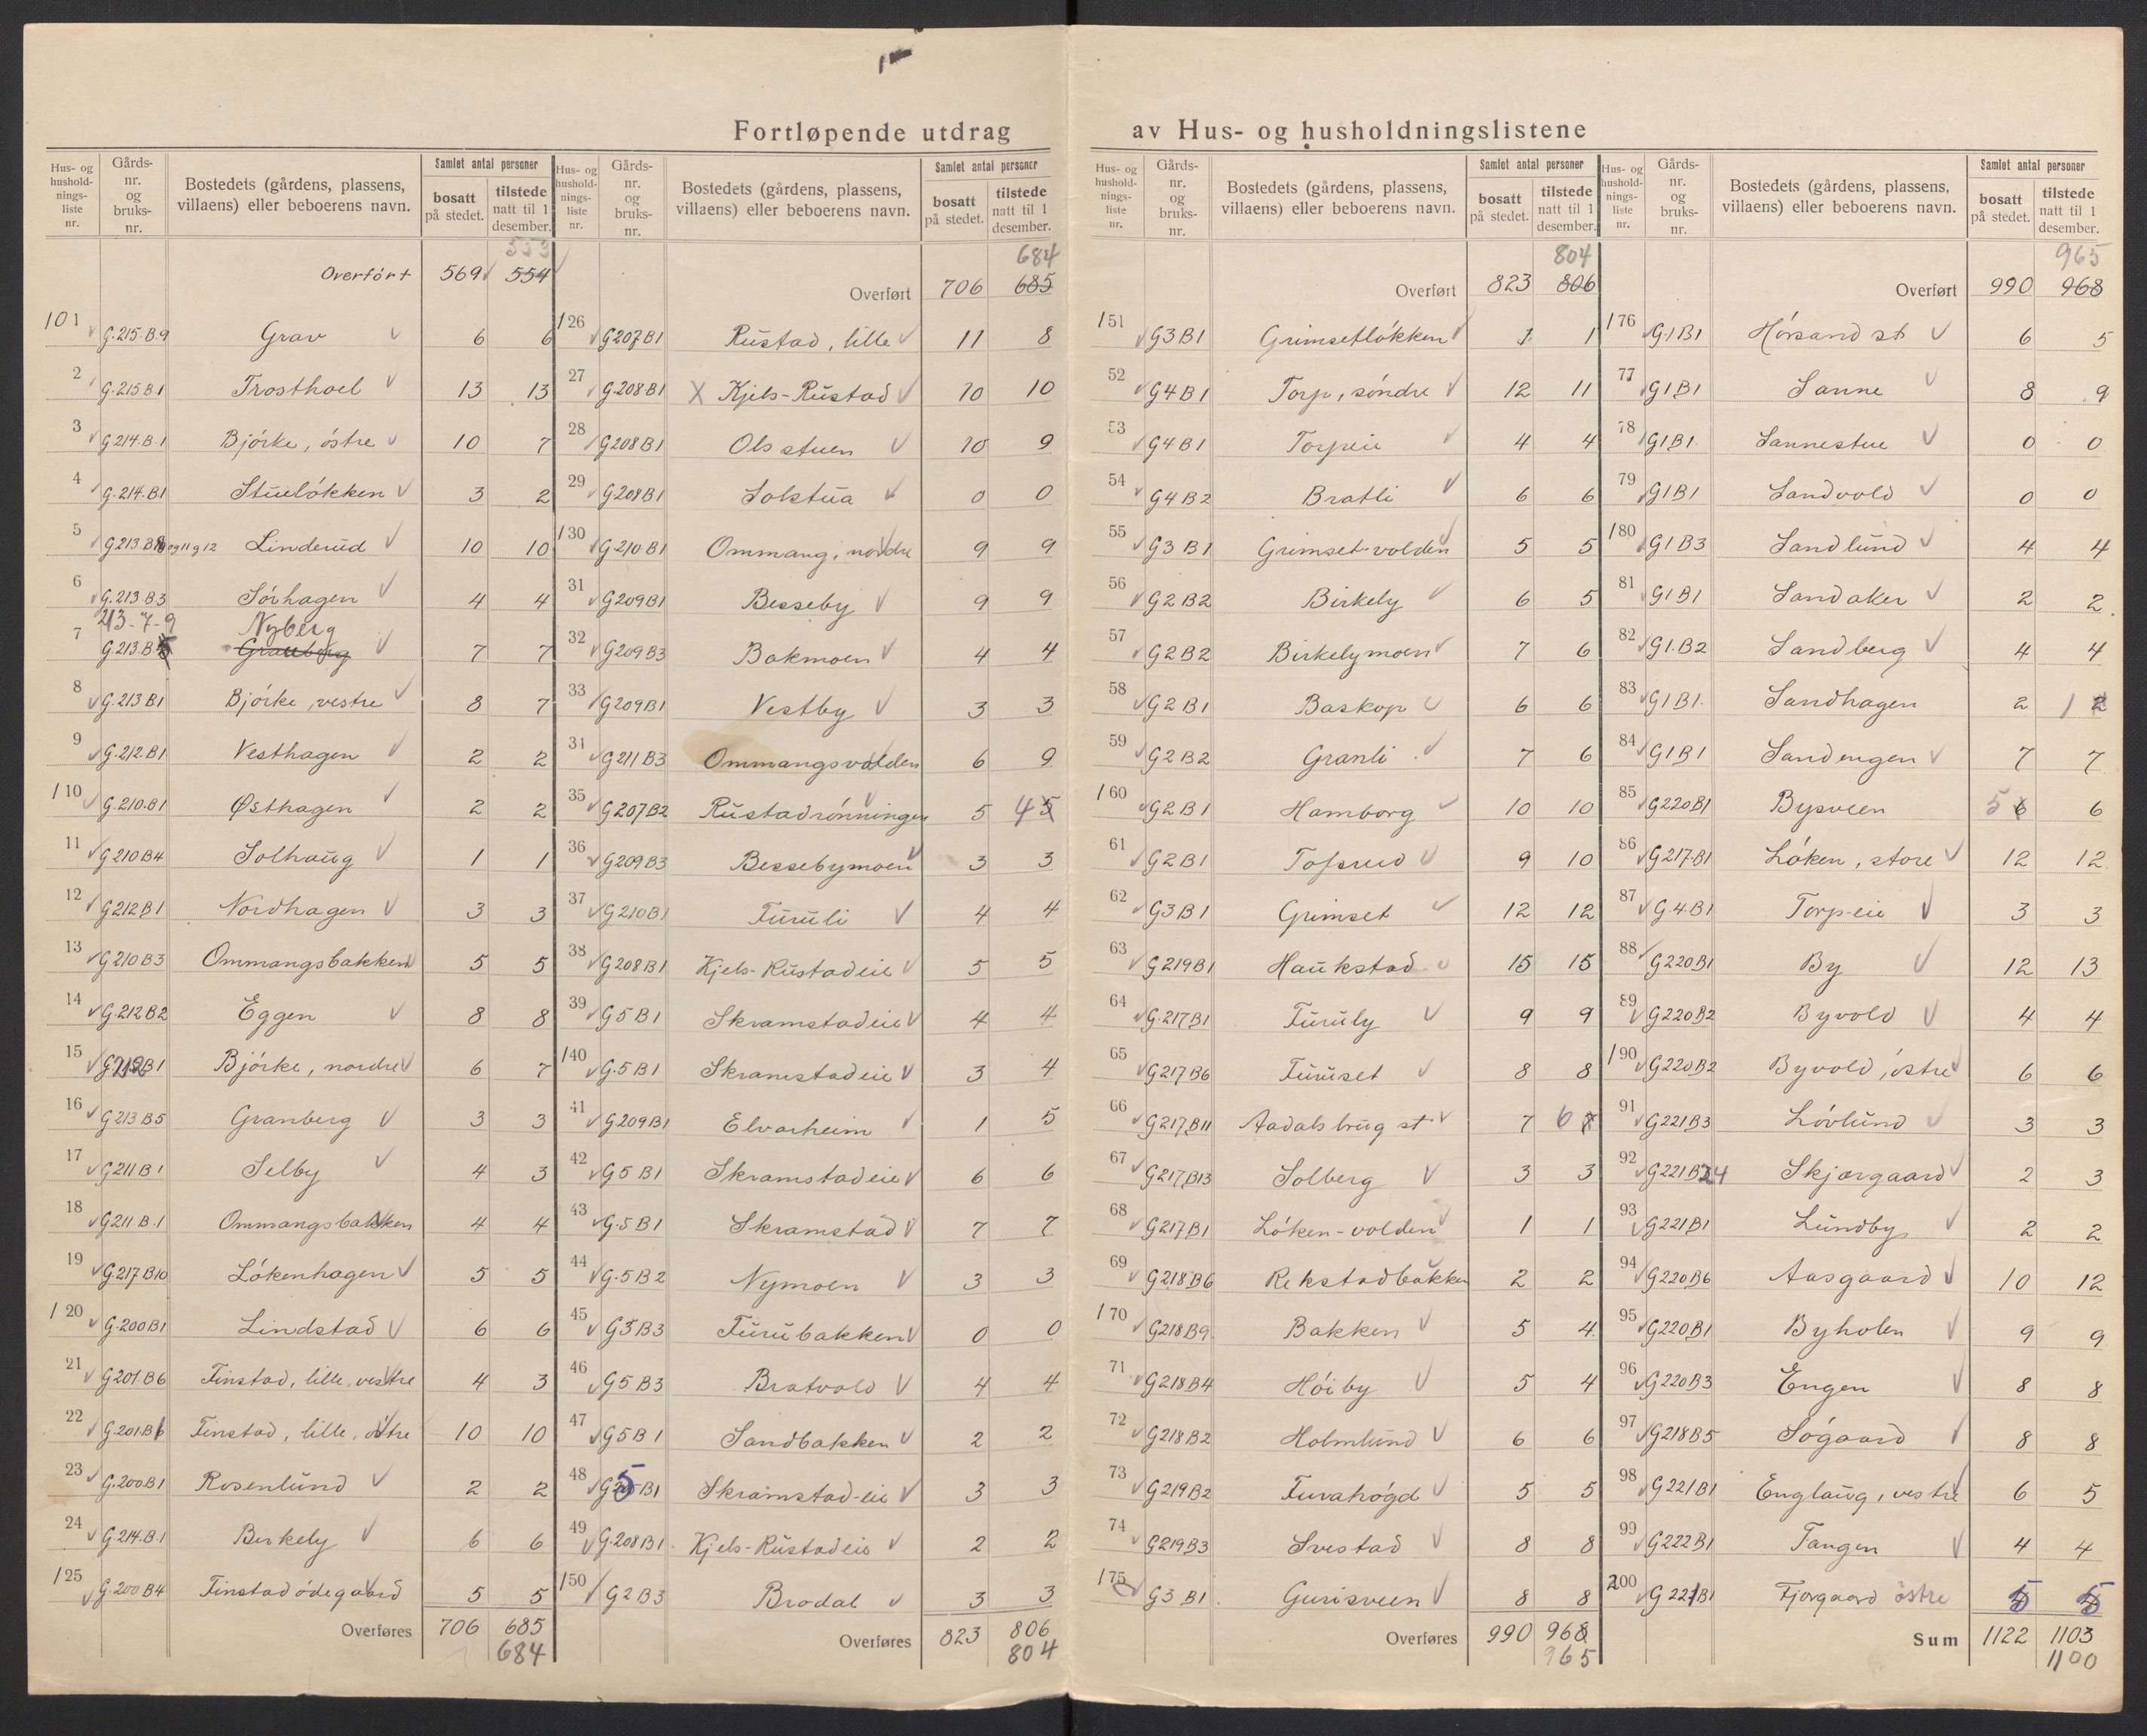 Fortløpende utdrag av Hus- og husholdningslistene
Hus- og husholdnings- liste nr. Gårds- nr. og bruks- nr. Bostedets (gårdens, plassens, villaens) eller beboerens navn. Samlet antal personer bosatt på stedet. tilstede natt til 1 desember.
553
Overført 569 554
101 G.215.B.9 Grav 6 6
2 G.215.B.1 Trosthoel 13 13
3 G.214.B.1 Bjórke, óstre 10 7
4 G.214.B1 Stuelókken 3 2
5 G213 B8 og 11 g 12 Linderud 10 10
6 G.213.B3 Sórhagen 4 4
213-7-9 Nyberg
7 G.213.B5 Granberg 7 7
8 G.213 B1 Bjórke, vestre 8 7
9 G.212.B1 Vesthagen 2 2
110 G.210.B1 Østhagen 2 2
11 G210 B4 Solhaug 1 1
12 G212 B1 Nordhagen 3 3
13 G210 B3 Ommangsbakken 5 5
14 G.212 B2 Eggen 8 8
15 G.212 B1 Bjórke, nordre 6 7
16 G213 B5 Granberg 3 3
17 G211 B1 Selby 4 3
18 G211.B.1 Ommangsbakken 4 4
19 G.217 B10 Lókenhagen 5 5
120 G.200 B1 Lindstad 6 6
21 G201 B6 Finstad, lille, vestre 4 3
22 G.201.B6 Finstad, lille, óstre 10 10
23 G.200.B1 Rosenlund 2 2
24 G.214.B.1 Birkely 6 6
125 G.200 B4 Finstadódegaard 5 5
Overføres 706 685
684
Hus- og husholdnings- liste nr. Gårds- nr. og bruks- nr. Bostedets (gårdens, plassens, villaens) eller beboerens navn. Samlet antal personer bosatt på stedet. tilstede natt til 1 desember.
684
Overført 706 685
126 G207 B1 Rustad, lille 11 8
27 G.208 B1 X Kjels-Rustad 10 10
28 G208 B1 Ols stuen 10 9
29 G.208 B1 Solstua 0 0
130 G.210.B1 Ommang, nordre 9 9
31 G209 B1 Besseby 9 9
32 G209 B3 Bakmoen 4 4
33 G209 B1 Vestby 3 3
31 G211 B3 Ommangsvolden 6 9
35 G207 B2 Rustadrónningen 5 4 5
36 G209 B3 Bessebymoen 3 3
37 G210 B1 Furuli 4 4
38 G208 B1 Kjels-Rustadeie 5 5
39 G5 B1 Skramstadeie 4 4
140 G.5 B1 Skramstadeie 3 4
41 G209 B1 Elvarheim 1 5
42 G5 B1 Skramstadeie 6 6
43 G.5 B1 Skramstad 7 7
44 G.5 B2 Nymoen 3 3
45 G5 B3 Furubakken 0 0
46 G5 B3 Bratvold 4 4
47 G5 B1 Sandbakken 2 2
48 G5 B1 Skramstad-eie 3 3
49 G.208 B1 Kjels-Rustadeie 2 2
150 G2 B3 Brodal 3 3
Overføres 823 806
804
Hus- og husholdnings- liste nr. Gårds- nr. og bruks- nr. Bostedets (gårdens, plassens, villaens) eller beboerens navn. Samlet antal personer bosatt på stedet. tilstede natt til 1 desember.
804
Overført 823 806
151 G3 B1 Grimsetlókken 1 1
52 G4 B1 Torp, sóndre 12 11
53 G4 B1 Torpeie 4 4
54 G4 B2 Bratli 6 6
55 G3 B1 Grimset-volden 5 5
56 G2 B2 Birkely 6 5
57 G2 B2 Birkelymoen 7 6
58 G2 B1 Baskop 6 6
59 G2 B2 Granli 7 6
160 G2 B1 Hamborg 10 10
61 G2 B1 Tofsrud 9 10
62 G3 B1 Grimset 12 12
63 G219 B1 Haukstad 15 15
64 G.217 B1 Furuly 9 9
65 G217 B6 Furuset 8 8
66 G217 B11 Aadalsbrug st 7 6 7
67 G217 B13 Solberg 3 3
68 G217 B1 Lóken-volden 1 1
69 G218 B6 Rekstadbakken 2 2
170 G218 B9 Bakken 5 4
71 G218 B4 Hóiby 5 4
72 G218 B2 Holmlund 6 6
73 G219 B2 Furahógd 5 5
74 G219 B3 Svestad 8 8
175 G3 B1 Gurisveen 8 8
Overføres 990 968
965
Hus- og husholdnings- liste nr. Gårds- nr. og bruks- nr. Bostedets (gårdens, plassens, villaens) eller beboerens navn. Samlet antal personer bosatt på stedet. tilstede natt til 1 desember.
965
Overført 990 968
176 G.1 B1 Hórsand st 6 5
77 G1 B1 Sanne 8 9
78 G1 B1 Sannestue 0 0
79 G1 B1 Sandvold 0 0
180 G1 B3 Sandlund 4 4
81 G1 B1 Sandaker 2 2
82 G1.B2 Sandberg 4 4
83 G1 B1 Sandhagen 2 1 2
84 G1 B1 Sandengen 7 7
85 G220 B1 Bysveen 5 6 6
86 G217.B1 Lóken, store 12 12
87 G.4.B1 Torp-eie 3 3
88 G220 B1 By 12 13
89 G220 B2 Byvold 4 4
190 G220 B2 Byvold, óstre 6 6
91 G221 B3 Lóvlund 3 3
92 G221 B24 Skjærgaard 2 3
93 G221 B1 Lundby 2 2
94 G220 B6 Aasgaard 10 12
95 G220 B1 Byholen 9 9
96 G220 B3 Engen 8 8
97 G218 B5 Sógaard 8 8
98 G221 B1 Englaug, vestre 6 5
99 G222 B1 Tangen 4 4
200 G221 B1 Fjorgaard östre 5 5
Sum 1122 1103
1100